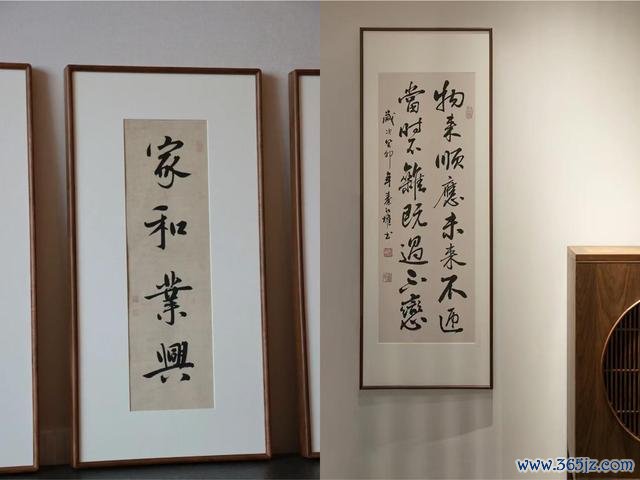 家和業興
物来顺應未来不迎
當时不雜既過不戀
歲次癸卯年
www.365jz.com